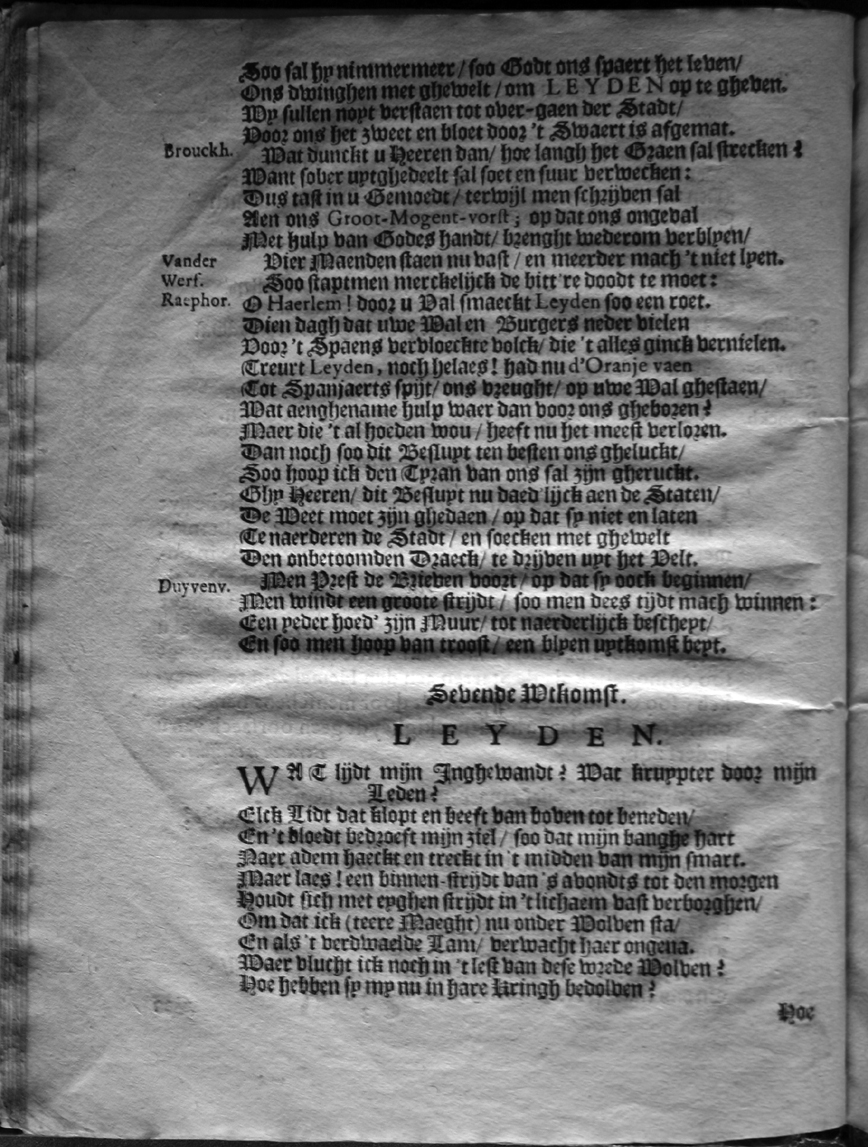 Soo sal hy nimmermeer / soo Godt ons spaert het leven/
Ons dwinghen met ghewelt / om LEYDEN op te gheven.
Wy sullen noyt verstaen tot over-gaen der Stadt/
Voor ons het zweet en bloet door 't Swaert is afgemat.
Brouckh. Wat dunckt u Heeren dan / hoe langh het Graen sal strecken?
Want sober uytghedeelt sal soet en suur verwecken:
Dus tast in u Gemoedt / terwijl men schrijven sal
Aen ons Groot-Mogent-vorst; op dat ons ongeval
Met hulp van Godes handt / brenght wederom verblyen/
Vander Vier Maenden staen nu vast / en meerder mach 't niet lyen.
Werf. Soo staptmen merckelijck de bitt're doodt te moet:
Raephor. O Haerlem! door u Val smaeckt Leyden soo een roet.
Dien dagh dat uwe Wal en Burgers neder vielen
Voor 't Spaens vervloeckte volck / die 't alles ginck vernielen.
Treurt Leyden, noch helaes! had nu d'Oranje vaen
Tot Spanjaerts spijt / ons vreught / op uwe Wal ghestaen/
Wat aenghename hulp waer dan voor ons gheboren?
Maer die 't al hoeden wou / heeft nu het meest verloren.
Dan noch soo dit Besluyt ten besten ons gheluckt/
Soo hoop ick den Tyran van ons sal zijn gheruckt.
Ghy Heeren / dit Besluyt nu daed'lijck aen de Staten/
De Weet moet zijn ghedaen / op dat sy niet en laten
Te naerderen de Stadt / en soecken met ghewelt
Den onbetoomden Draeck / te drijven uyt het Velt.
Duyvenv. Men Prest de Brieven voort / op dat sy oock beginnen/
Men windt een groote strijdt / soo men dees tijdt mach winnen:
Een yeder hoed' zijn Muur / tot naerderlijck beschept/
En soo men hoop van troost / een blyen uytkomst bept.
Sevende Wtkomst.
LEYDEN.
WAT lijdt mijn Inghewandt? Wat kruypter door mijn
Leden?
Elck Lidt dat klopt en beeft van boven tot beneden/
En 't bloedt bedroeft mijn ziel / soo dat mijn banghe hart
Naer adem haeckt en treckt in 't midden van mijn smart.
Maer laes! een binnen-strijdt van 's avondts tot den morgen
Houdt sich met eyghen strijdt in 't lichaem vast verborghen/
Om dat ick (teere Maeght) nu onder Wolven sta/
En als 't verdwaelde Lam / verwacht haer ongena.
Waer vlucht ick noch in 't lest van dese wrede Wolven?
Hoe hebben sy my nu in hare Kringh bedolven?
Hoe